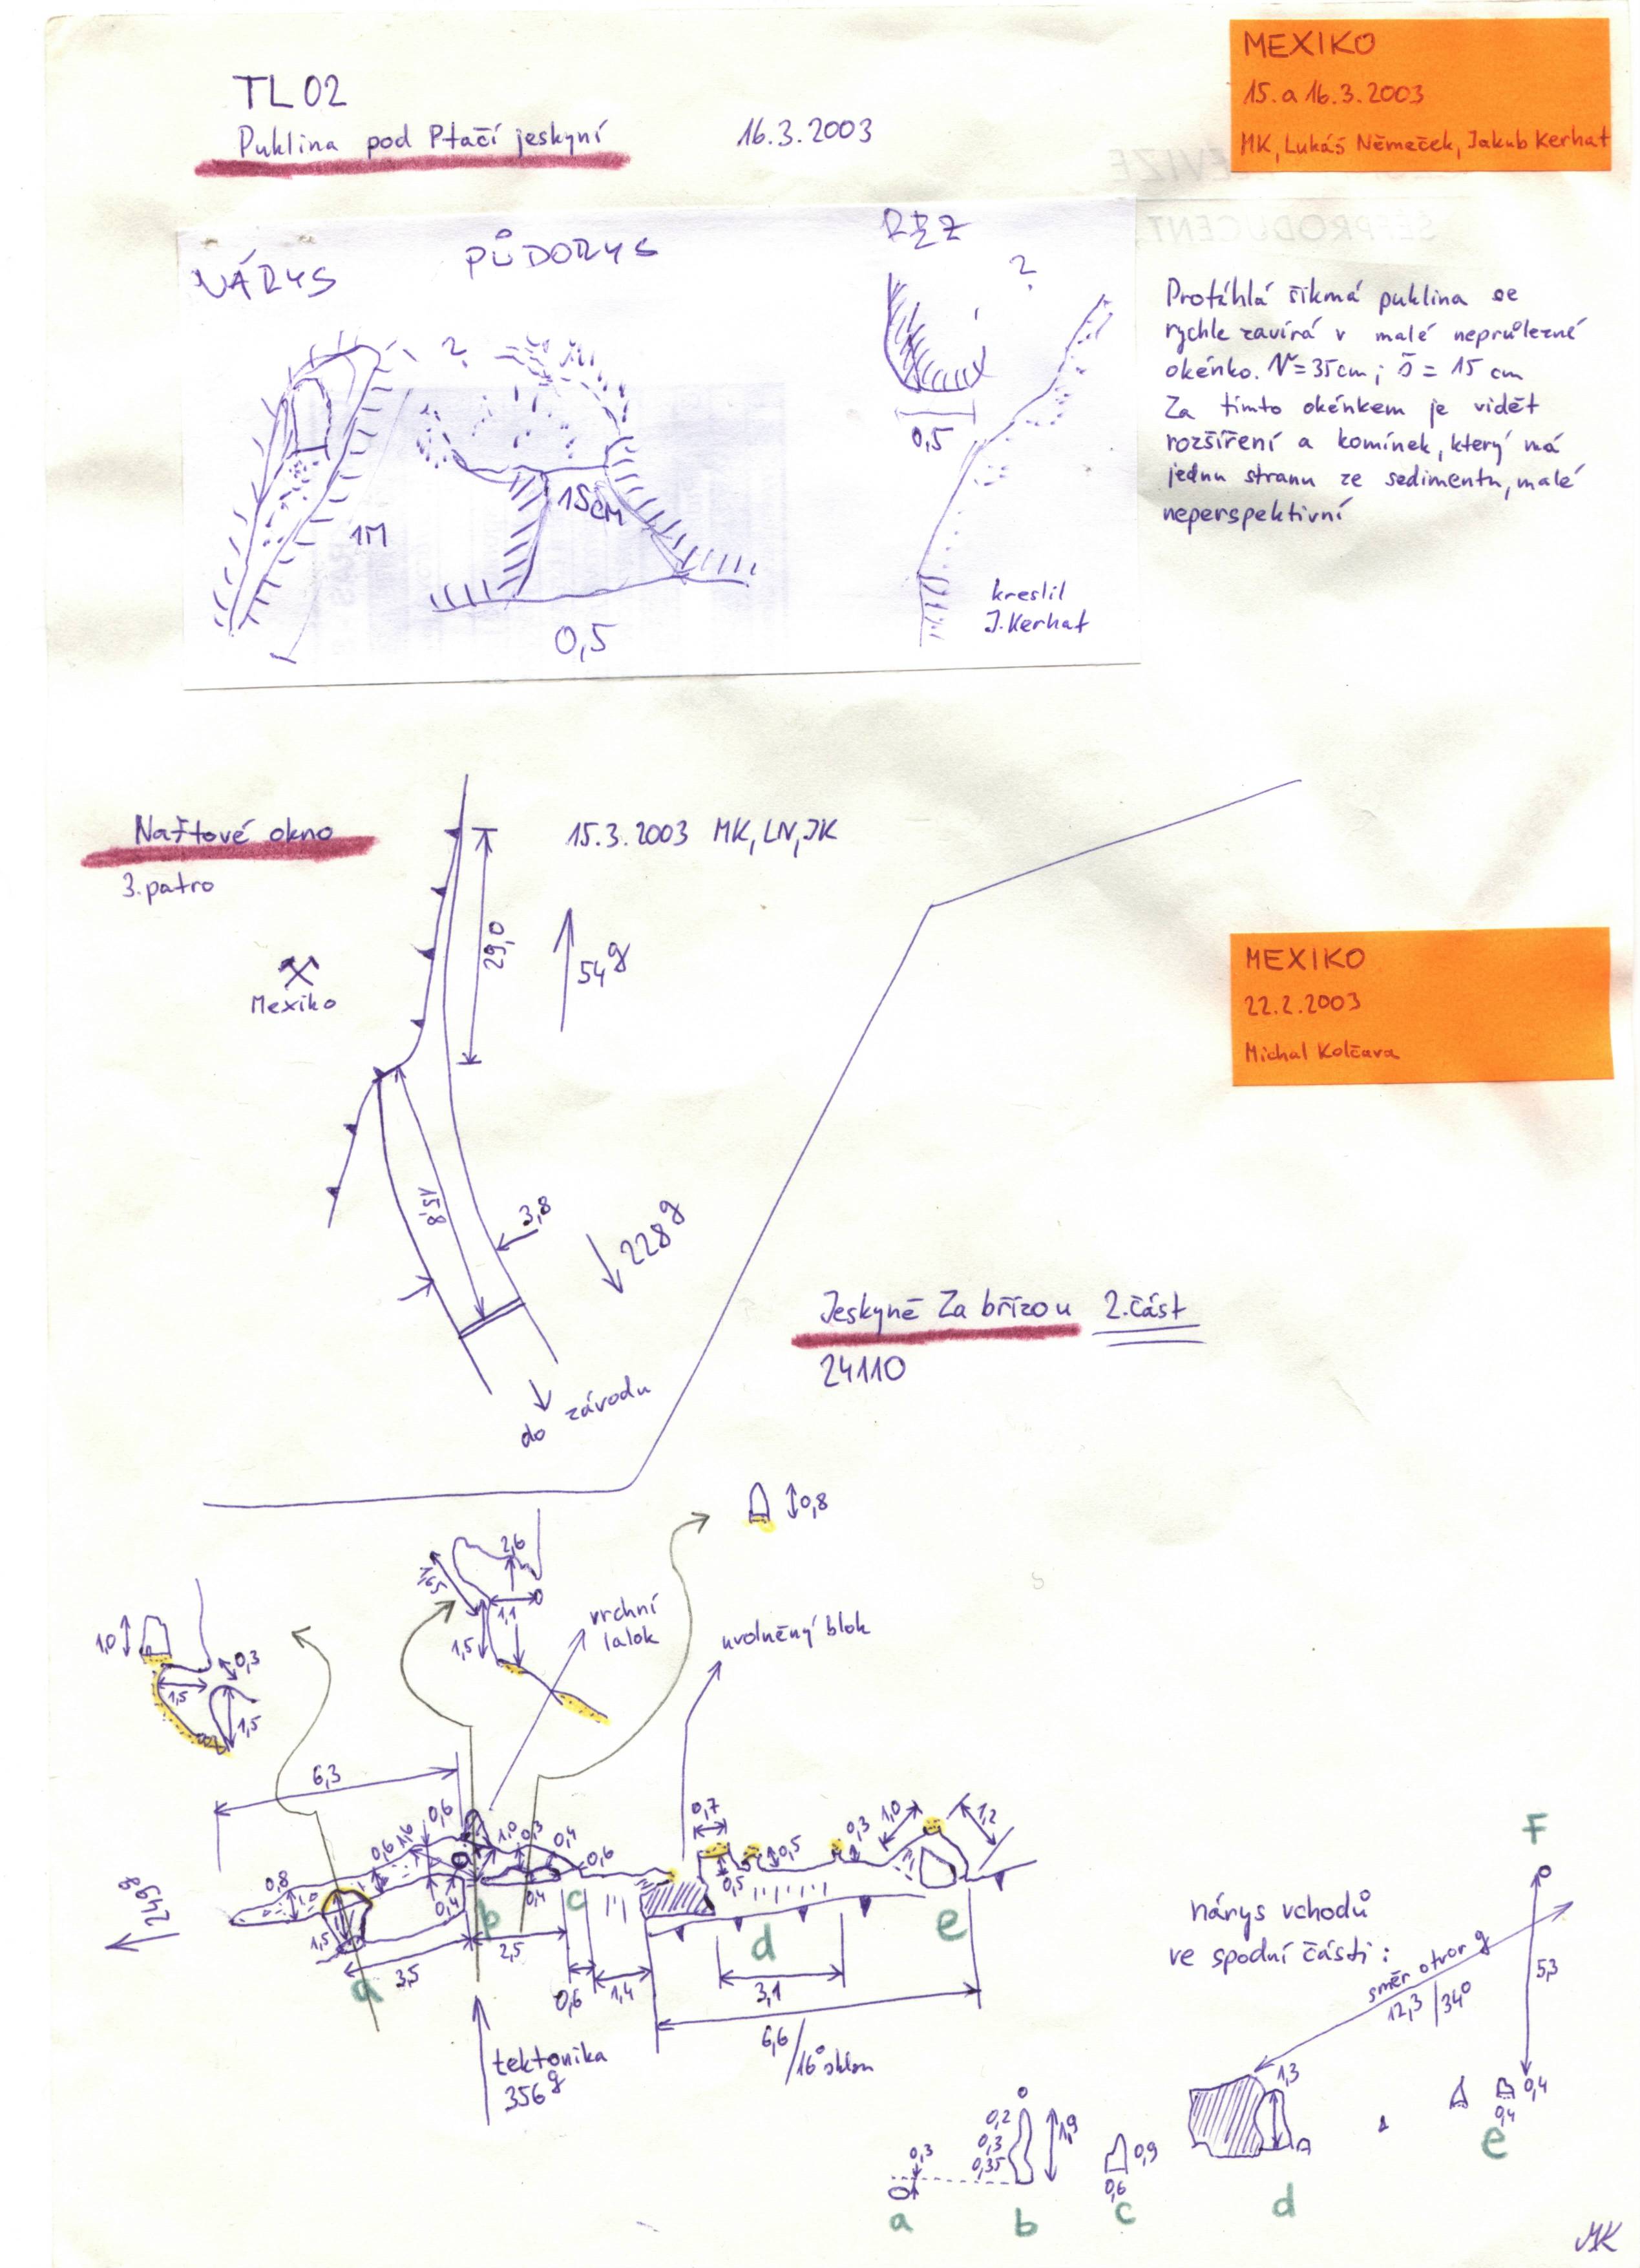 TL02
Puklina pod Ptačí jeskyní
16.3.2003
MEXIKO
15. a 16.3.2003
MK, Lukáš Němeček, Jakub Kerhat
NÁRYS
PŮDORYS
ŘEZ
?
?
1M
15CM
0,5
0,5
kreslil
J. Kerhat
Protáhlá šikmá puklina se
rychle zavírá v malé neprůlezné
okénko. V=35cm; š = 15 cm
Za tímto okénkem je vidět
rozšíření a komínek, který má
jednu stranu ze sedimentu, malé
neperspektivní
Naftové okno
3. patro
15.3.2003 MK, LN, JK
Mexiko
29,0
54g
15,8
3,8
228g
do závodu
MEXIKO
22.2.2003
Michal Kolčava
Jeskyně Za břízou 2. část
24110
0,8
2,6
1,65
1,1
1,5
vrchní
lalok
uvolněný blok
1,0
0,3
1,5
1,5
6,3
0,6
0,6
1,6
1,0
0,3
0,4
0,6
0,8
1,0
1,5
0,4
0,4
0,7
0,5
0,5
0,3
1,0
1,2
249g
a
b
c
d
e
3,5
2,5
0,6
1,4
3,1
6,6/16° sklon
tektonika
356g
nárys vchodů
ve spodní části:
F
5,3
směr otvor g
12,3/34°
1,3
0,4
0,4
e
0,3
a
0,2
0,3
0,35
1,9
b
0,9
0,6
c
d
MK